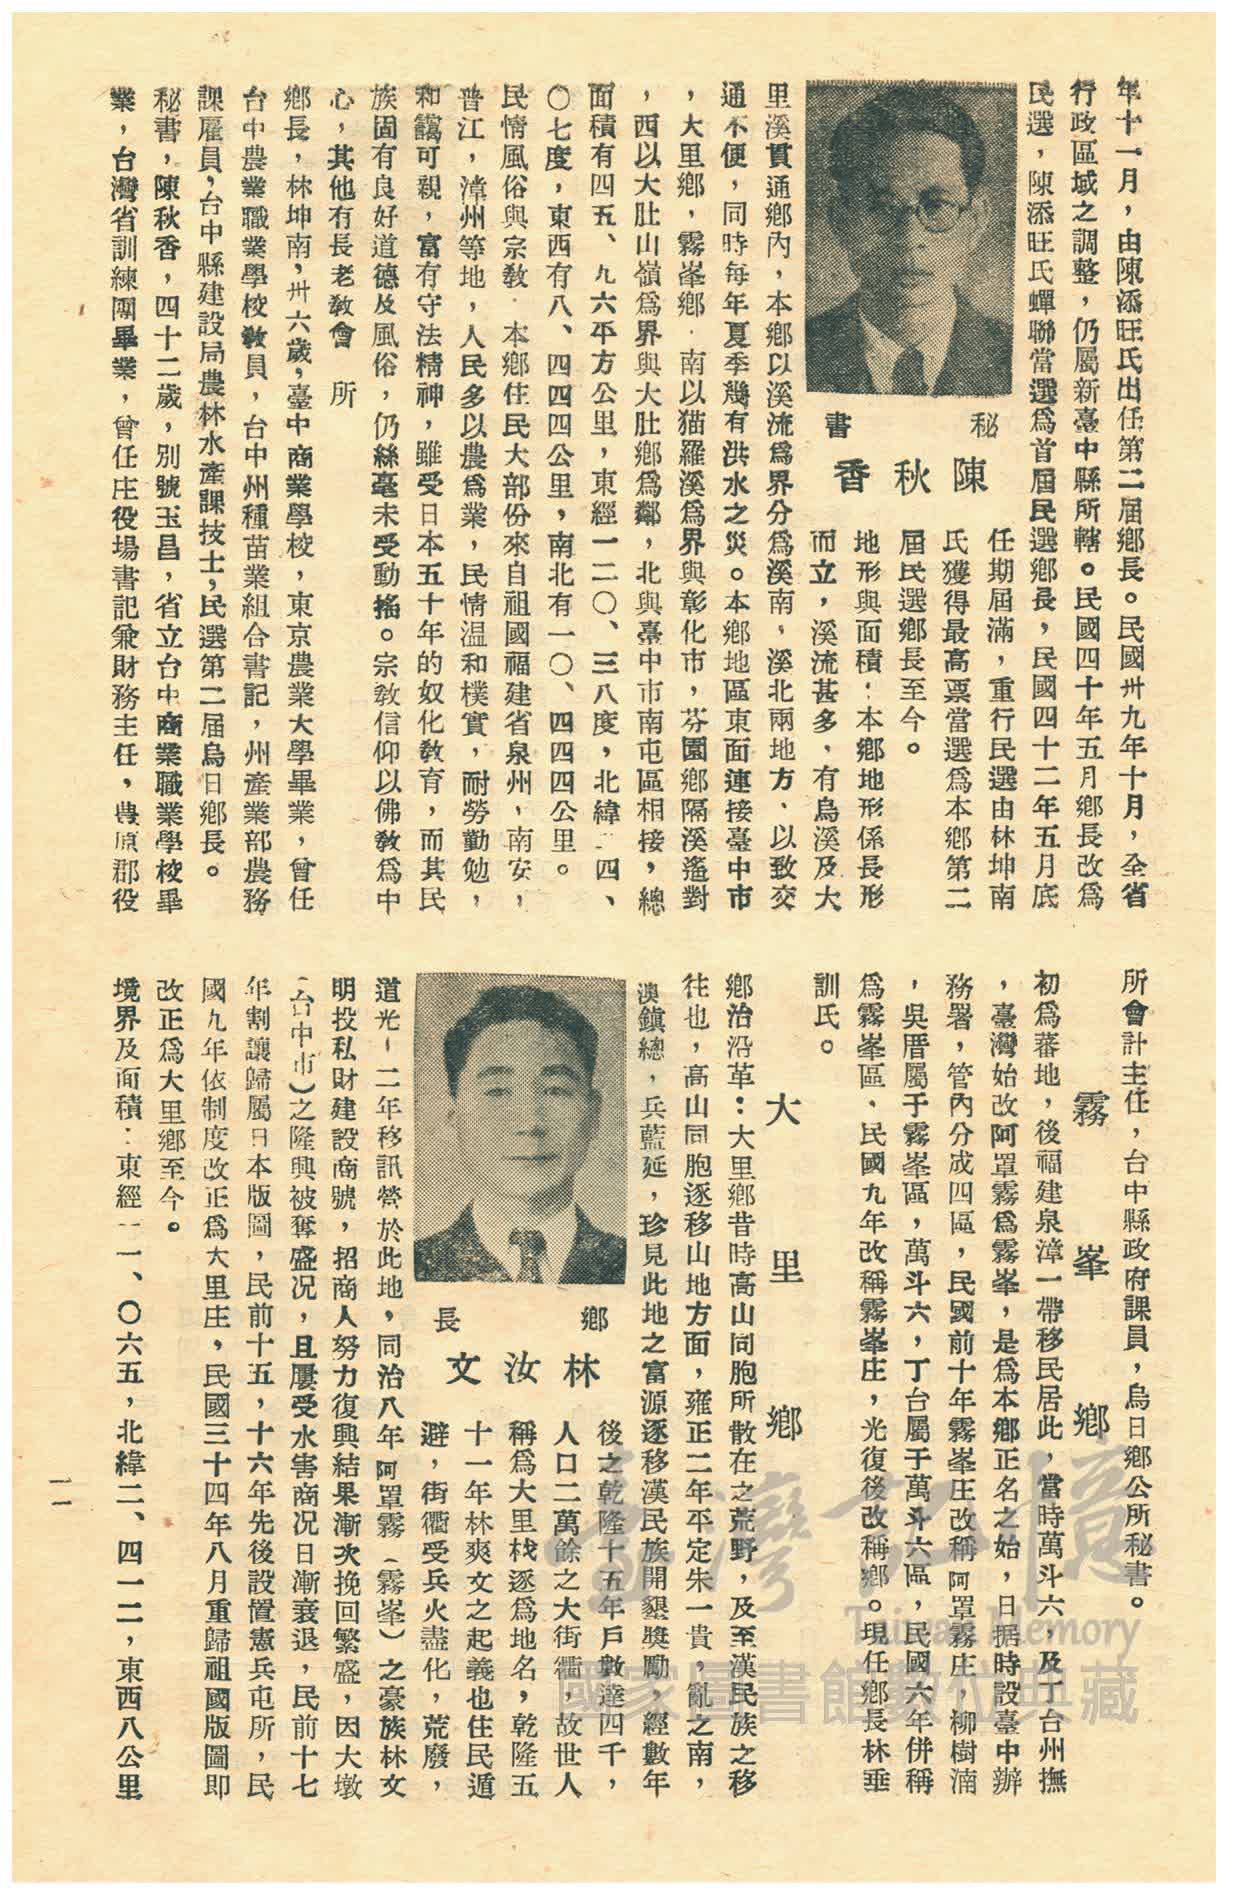 年十一月，由陳添旺氏出任第二届鄉長。民國卅九年十月，全省
行政區域之調整，仍屬新臺中縣所轄。民國四十年五月鄉長改爲
民選，陳添旺氏蟬聯當選爲首屆民選鄉長，民國四十二年五月底
任期屆滿，重行民選由林坤南
氏獲得最高票當選爲本鄉第二
屆民選鄉長至今。
地形與面積：本鄉地形係長形
而立，溪流甚多，有烏溪及大
秘書
陳秋香
里溪貫通鄉內，本鄉以溪流爲界分爲溪南，溪北兩地方，以致交
通不便，同時每年夏季幾有洪水之災。本鄉地區東面連接臺中市
，大里鄉，霧峯鄉．南以猫羅溪爲界與彰化市，芬園鄉隔溪遙對
，西以大肚山嶺爲界與大肚鄉爲鄰，北與臺中市南屯區相接，總
面積有四五、九六平方公里，東經一二〇、三八度，北緯二四、
〇七度，東西有八、四四四公里，南北有一〇、四四四公里。
民情風俗與宗教．本鄉住民大部份來自祖國福建省泉州，南安，
晋江，漳州等地，人民多以農爲業，民情温和樸實，耐勞勤勉，
和藹可親，富有守法精神，雖受日本五十年的奴化教育，而其民
族固有良好道德及風俗，仍絲毫未受動搖。宗教信仰以佛教爲中
心，其他有長老教會　所
鄉長，林坤南，卅六歲，臺中商業學校，東京農業大學畢業，曾任
台中農業職業學校教員，台中州種苗業組合書記，州產業部農務
課雇員，台中縣建設局農林水產課技士，民選第二届烏日鄉長。
秘書，陳秋香，四十二歲，別號玉昌，省立台中商業職業學校畢
業，台灣省訓練團畢業，曾任庄役場書記兼財務主任，豊原郡役
所會計主任，台中縣政府課員，烏日鄉公所秘書。
霧峯鄉
初爲蕃地，後福建泉漳一帶移民居此，當時萬斗六，及丁台州撫
，臺灣始改阿罩霧爲霧峯，是爲本鄉正名之始，日据時設臺中辦
務署，管內分成四區，民國前十年霧峯庄改稱阿罩霧庄，柳樹湳
，吳厝屬于霧峯區，萬斗六，丁台屬于萬斗六區，民國六年併稱
爲霧峯區、民國九年改稱霧峯庄，光復後改稱鄉。現任鄉長林垂
訓氏。
大里鄉
鄉治沿革：大里鄉昔時高山同胞所散在之荒野，及至漢民族之移
往也，高山同胞逐移山地方面，雍正二年平定朱一貴，亂之南，
澳鎮總，兵藍延，珍見此地之富源逐移漢民族開墾奬勵，經數年
後之乾隆十五年戶數達四千，
人口二萬餘之大街衢，故世人
稱爲大里杙逐爲地名，乾隆五
十一年林爽文之起義也住民遁
避，街衢受兵火盡化，荒廢，
鄉長
林汝文
道光，二年移訊營於此地，同治八年阿罩霧（霧峯）之豪族林文
明投私財建設商號，招商人努力復興結果漸次挽回繁盛，因大墩
（台中市）之隆興被奪盛况，且屢受水害商况日漸衰退，民前十七
年割讓歸屬日本版圖，民前十五，十六年先後設置憲兵屯所，民
國九年依制度改正爲大里庄，民國三十四年八月重歸祖國版圖即
改正爲大里鄉至今。
境界及面積：東經一一、〇六五，北緯二、四一二，東西八公里
一一
臺灣記憶
Taiwan Memory
國家圖書館數位典藏